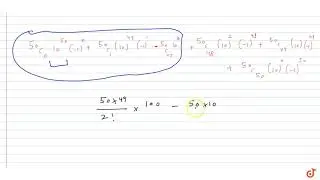 50C0 10^50 (-1)^0 + 50C1 (10)^49 (-1)^1 - 50C 10 + 50C48 (10)^2 (-1)^48 + 50C49 (10)^1 (-1)^49
+ 50C50 (10)^0 (-1)^50
50×49/2! × 100 - 50×10